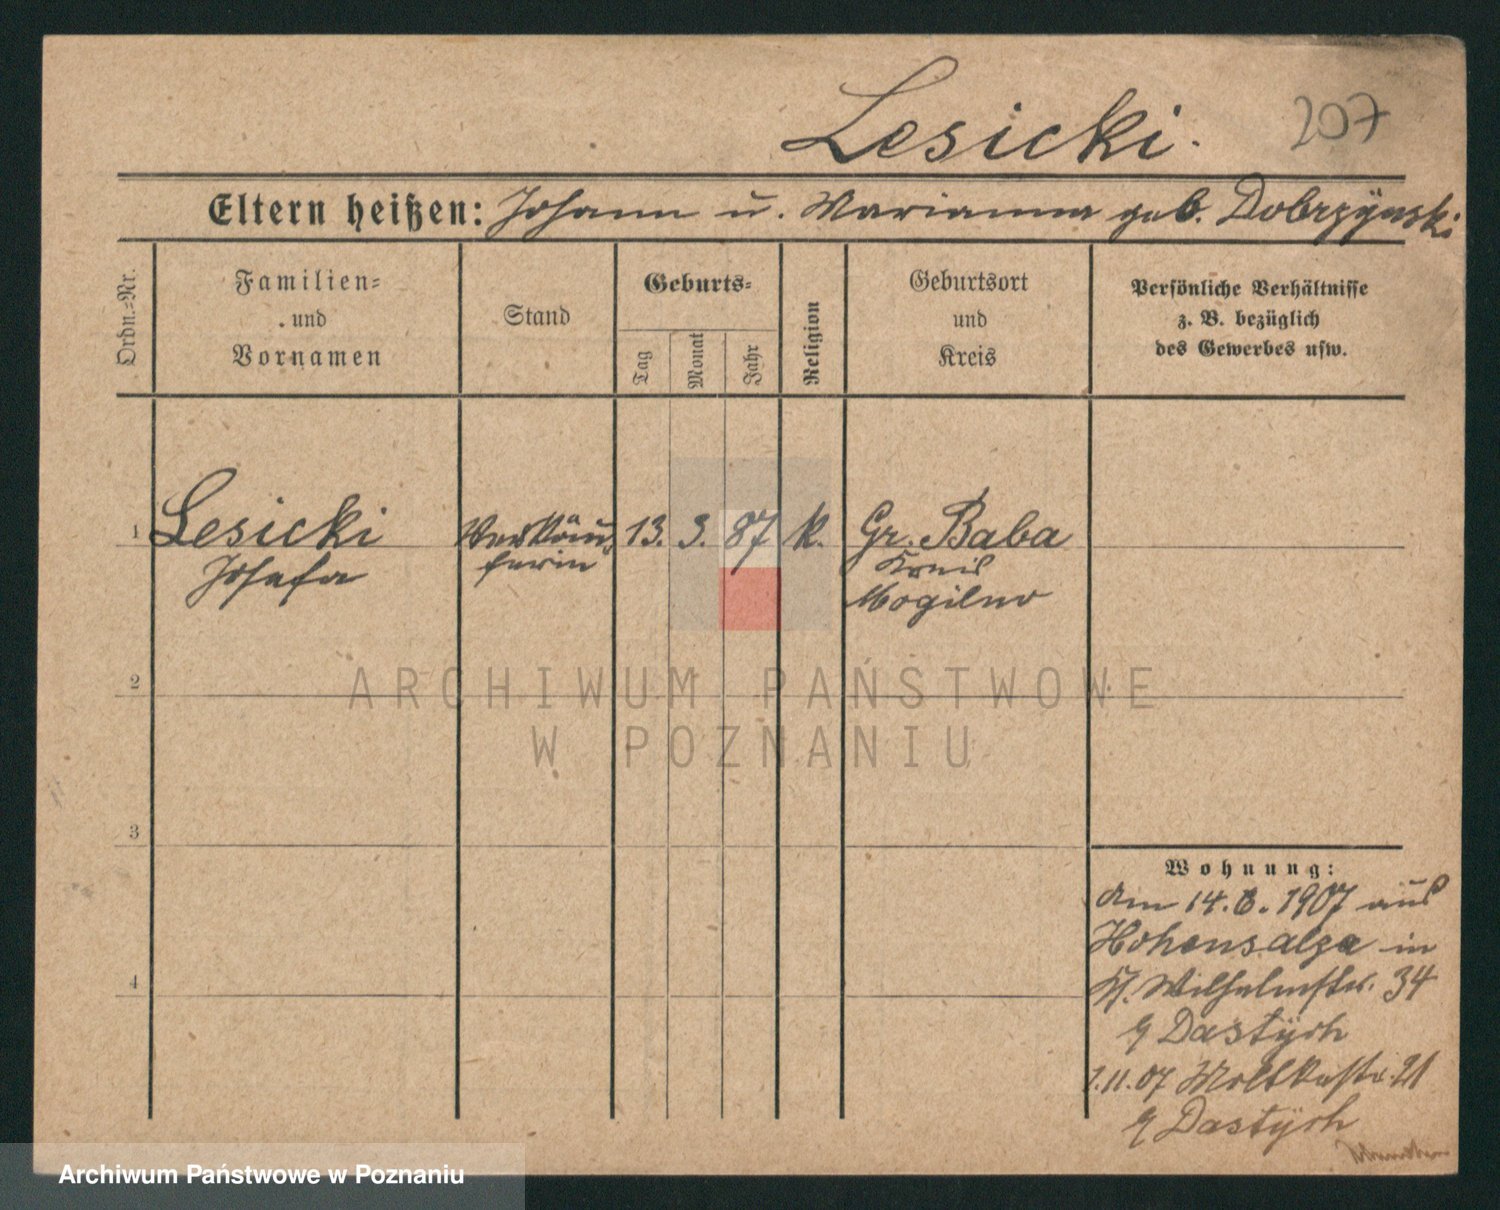 Lesicki.
207
Eltern heißen: Johann u. Marianna geb. Dobrzÿnski
Ordn.-Nr.
Familien-
und
Vornamen
Stand
Geburts-
Tag
Monat
Jahr
Religion
Geburtsort
und
Kreis
Persönliche Verhältnisse
z. B. bezüglich
des Gewerbes usw.
1 Lesicki Verkäu- 13. 3. 87 k. Gr. Baba
Josefa ferin Kreis
Mogilno
2
ARCHIWUM PAŃSTWOWE
W POZNANIU
3
Wohnung:
am 14.6.1907 aus
Hohensalza in
4
Wilhelmstr. 34
Dastÿch
1.11.07 Moltkestr. 21
Dastÿch
Archiwum Państwowe w Poznaniu